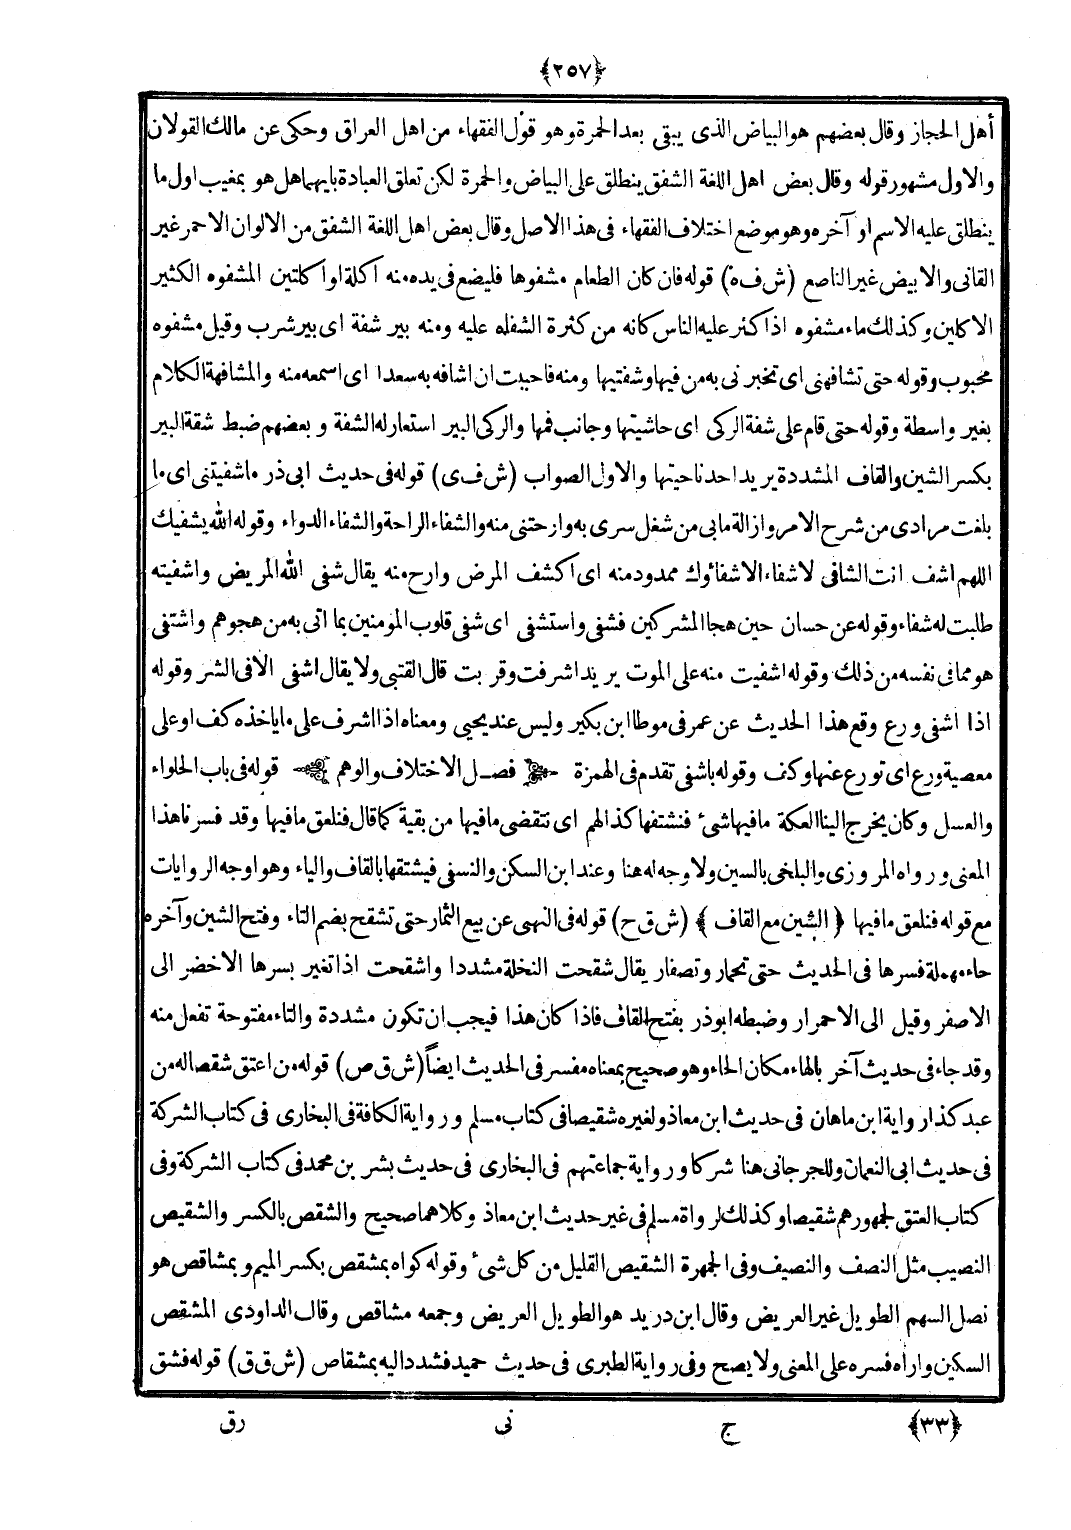 ﴿٢٥٧﴾
أهل الحجاز وقال بعضهم هو البياض الذى يبقى بعد الحمرة وهو قول الفقهاء من اهل العراق وحكى عن مالك القولان
والاول مشهور قوله وقال بعض اهل اللغة الشفق ينطلق على البياض والحمرة لكن تعلق العبادة بايهما هل هو بمغيب اول ما
ينطلق عليه الاسم او آخره وهو موضع اختلاف الفقهاء فى هذا الاصل وقال بعض اهل اللغة الشفق من الالوان الاحمر غير
القانى والابيض غير الناصع (ش ف ه) قوله فان كان الطعام مشفوها فليضع فى يده منه اكلة او اكلتين المشفوه الكثير
الاكلين وكذلك ماء مشفوه اذا كثر عليه الناس كانه من كثرة الشفاه عليه ومنه بير شفة اى بير شرب وقيل مشفوه
محبوب وقوله حتى تشافهنى اى تخبر نى به من فيها وشفتيها ومنه فاحببت ان اشافه به سعدا اى اسمعه منه والمشافهة الكلام
بغير واسطة وقوله حتى قام على شفة الركى اى حاشيتها وجانب فمها والركى البير استعار له الشفة و بعضهم ضبط شقة البير
بكسر الشين والقاف المشددة يريد احد ناحيتها والاول الصواب (ش ف ى) قوله فى حديث ابى ذر ما شفيتنى اى ما
بلغت مرادى من شرح الامر وازالة مابى من شغل سرى به وارحتنى منه والشفاء الراحة والشفاء الدواء وقوله الله يشفيك
اللهم اشف انت الشافى لا شفاء الا شفائوك ممدود منه اى اكشف المرض وارح منه يقال شفى الله المريض واشفيته
طلبت له شفاء وقوله عن حسان حين هجا المشركين فشفى واستشفى اى شفى قلوب المومنين بما اتى به من هجوهم واشتفى
هو مما فى نفسه من ذلك وقوله اشفيت منه على الموت يريد اشرفت وقر بت قال القتبى ولا يقال اشفى الا فى الشر وقوله
اذا اشفى ورع وقع هذا الحديث عن عمر فى موطا ابن بكير وليس عند يحيى ومعناه اذا اشرف على ما ياخذه كف او على
معصية ورع اى تورع عنها وكف وقوله باشفى تقدم فى الهمزة فصـل الاختلاف والوهم قوله فى باب الحلواء
والعسل وكان يخرج الينا العكة ما فيها شئ فنشتفها كذا لهم اى نتقضى ما فيها من بقية كما قال فنلعق ما فيها وقد فسرنا هذا
المعنى ورواه المروزى والبلخى بالسين ولا وجه له هنا وعند ابن السكن والنسفى فيشتقها بالقاف والياء وهو اوجه الروايات
مع قوله فنلعق ما فيها ﴿ الشين مع القاف ﴾ (ش ق ح) قوله فى النهى عن بيع الثمار حتى تشقح بضم التاء وفتح الشين وآخره
حاء مهملة فسرها فى الحديث حتى تحمار وتصفار يقال شقحت النخلة مشددا واشقحت اذا تغير بسرها الاخضر الى
الاصفر وقيل الى الاحمرار وضبطه ابوذر بفتح القاف فاذا كان هذا فيجب ان تكون مشددة والتاء مفتوحة تفعل منه
وقد جاء فى حديث آخر بالهاء مكان الحاء وهو صحيح بمعناه مفسر فى الحديث ايضاً (ش ق ص) قوله من اعتق شقصا له من
عبد كذا رواية ابن ماهان فى حديث ابن معاذ ولغيره شقيصا فى كتاب مسلم ورواية الكافة فى البخارى فى كتاب الشركة
فى حديث ابى النعمان وللجرجانى هنا شركا ورواية جماعتهم فى البخارى فى حديث بشر بن محمد فى كتاب الشركة وفى
كتاب العتق لجمهورهم شقيصا وكذلك لرواة مسلم فى غير حديث ابن معاذ وكلاهما صحيح والشقص بالكسر والشقيص
النصيب مثل النصف والنصيف وفى الجمهرة الشقيص القليل من كل شئ وقوله كواه بمشقص بكسر الميم و بمشاقص هو
نصل السهم الطويل غير العريض وقال ابن دريد هو الطويل العريض وجمعه مشاقص وقال الداودى المشقص
السكين واراه فسره على المعنى ولا يصح وفى رواية الطبرى فى حديث حميد فشدد اليه بمشقاص (ش ق ق) قوله فشق
﴿٣٣﴾ ج نى رق